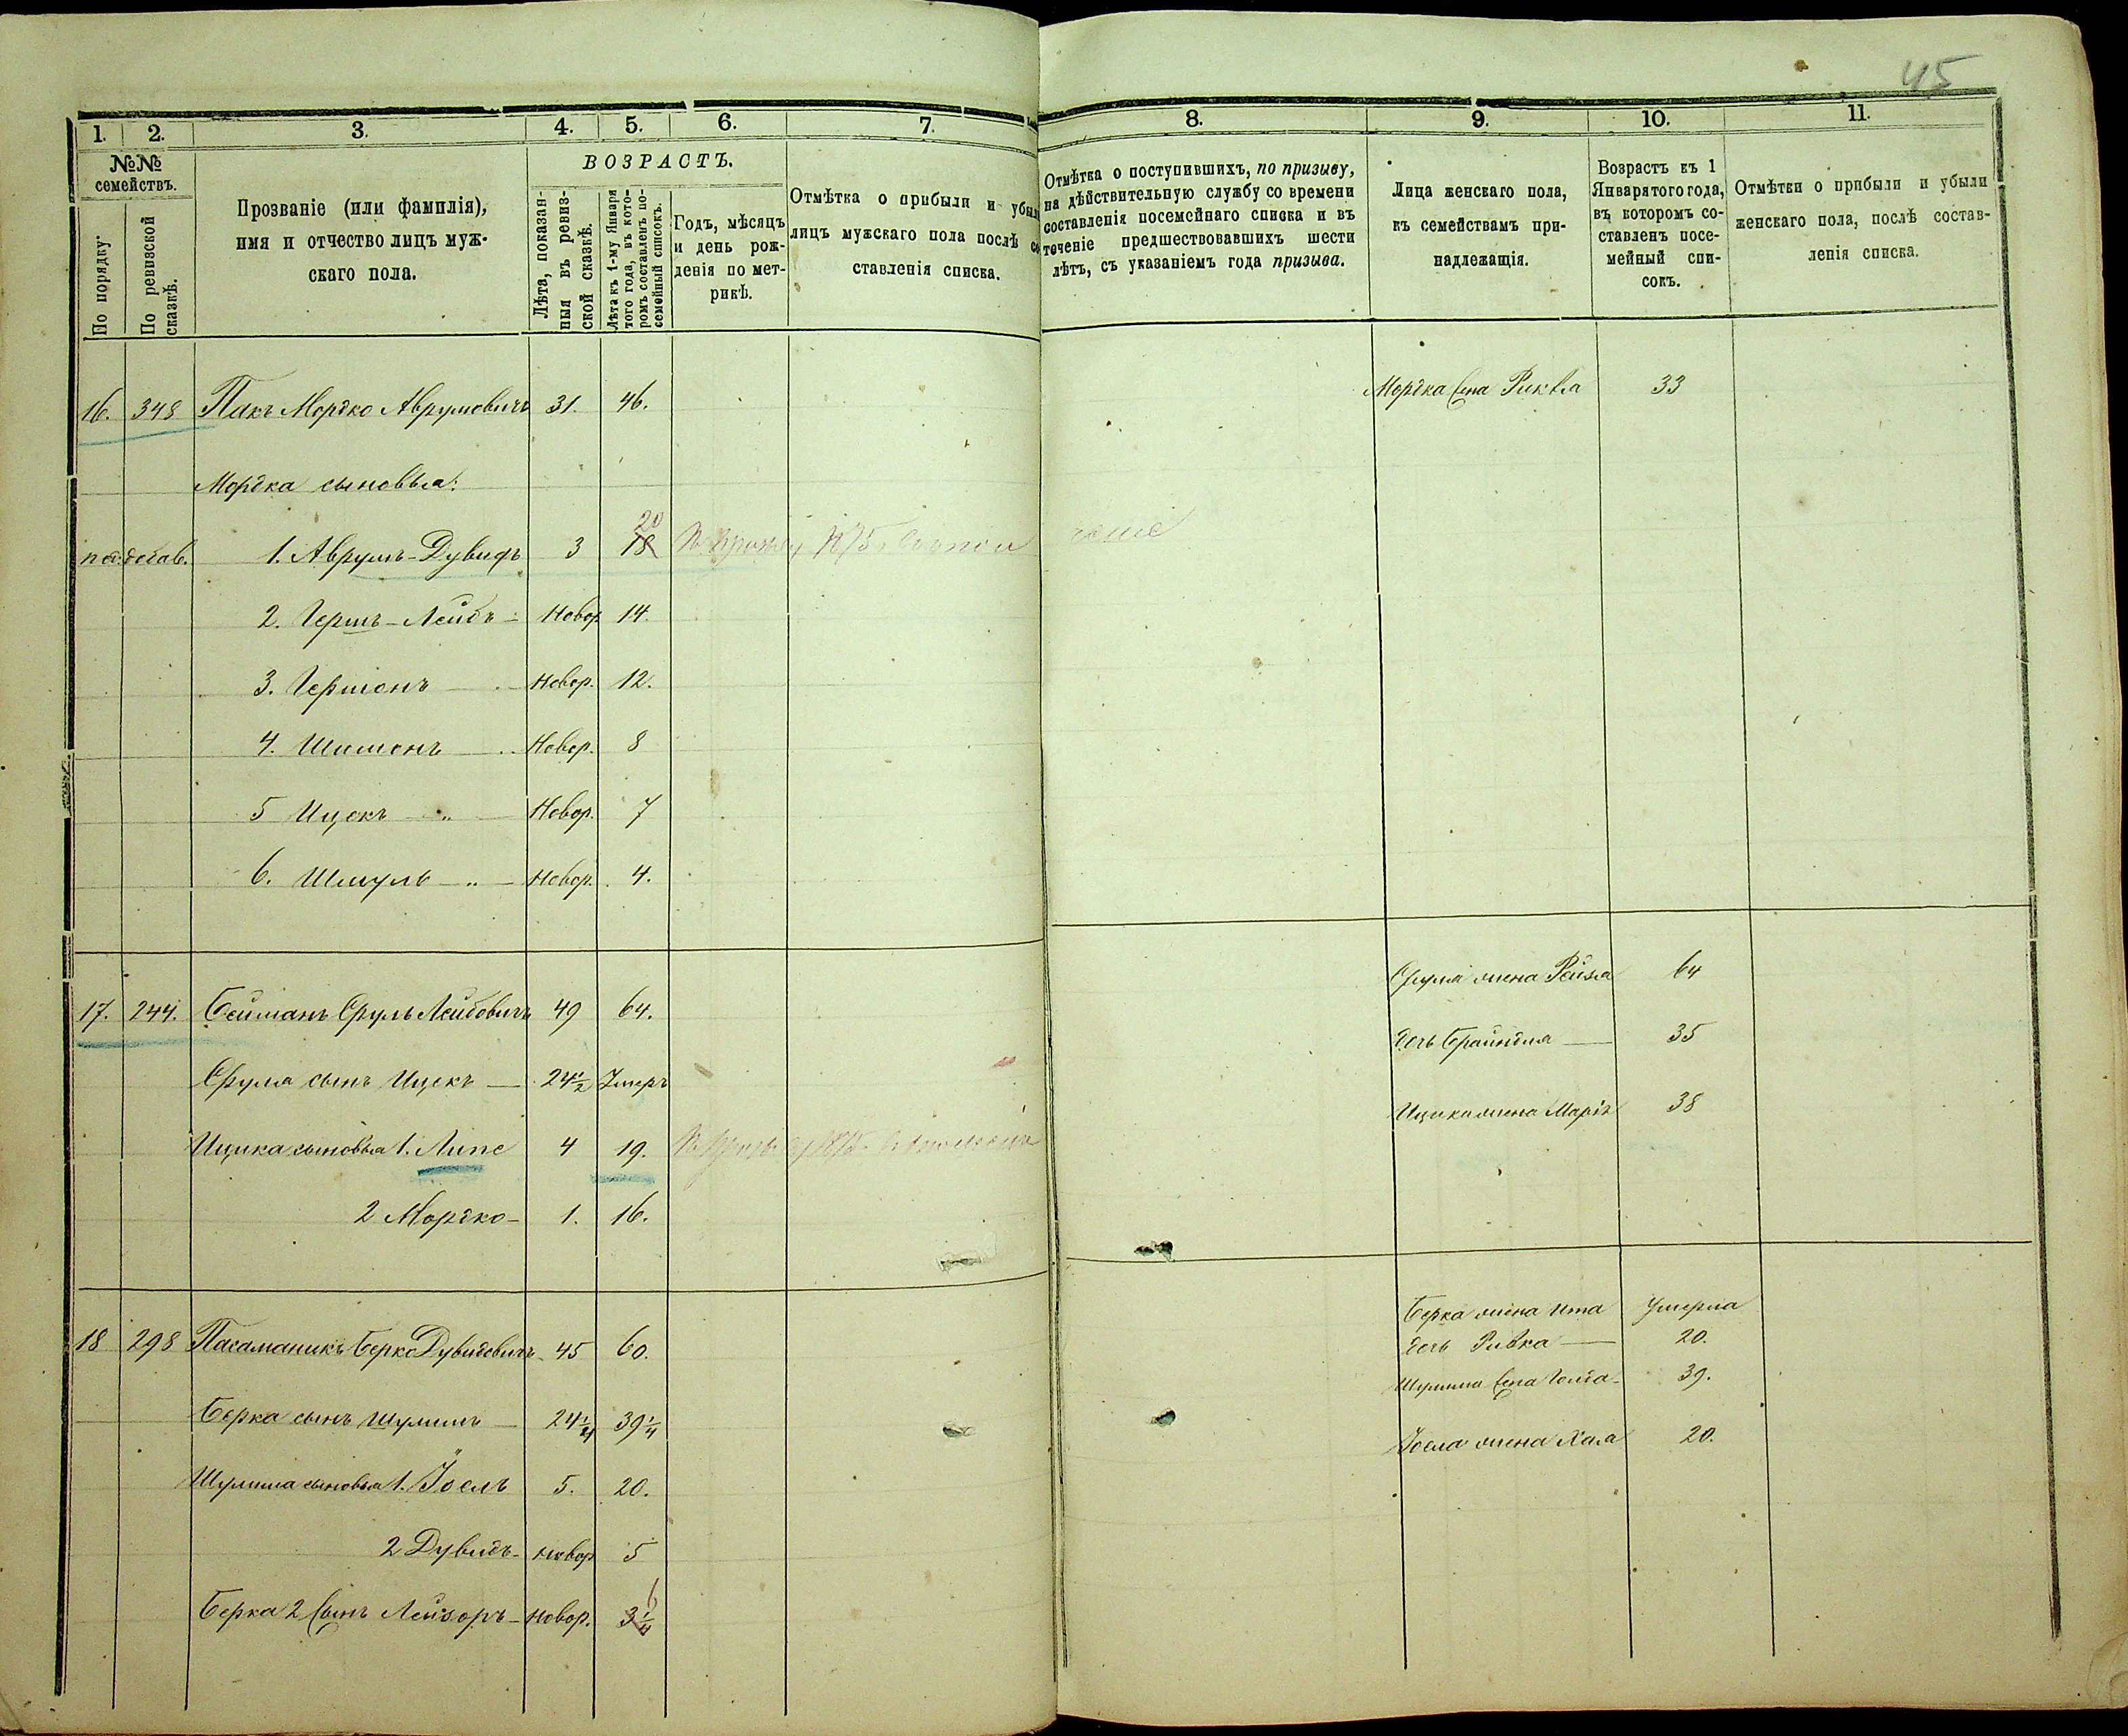 45
1. 2. 3. 4. 5. 6. 7. 8. 9. 10. 11.
№№ семействъ.
По порядку.
По ревизской сказкѣ.
Прозваніе (или фамилія),
имя и отчество лицъ муж-
скаго пола.
ВОЗРАСТЪ.
Лѣта, показан-
ныя въ ревиз-
ской сказкѣ.
Лѣта къ 1-му Января
того года, въ кото-
ромъ составленъ по-
семейный списокъ.
Годъ, мѣсяцъ
и день рож-
денія по мет-
рикѣ.
Отмѣтка о прибыли и убыли
лицъ мужскаго пола послѣ со
ставленія списка.
Отмѣтка о поступившихъ, по призыву,
на дѣйствительную службу со времени
составленія посемейнаго списка и въ
теченіе предшествовавшихъ шести
лѣтъ, съ указаніемъ года призыва.
Лица женскаго пола,
къ семействамъ при-
надлежащія.
Возрастъ къ 1
Января того года,
въ которомъ со-
ставленъ посе-
мейный спи-
сокъ.
Отмѣтки о прибыли и убыли
женскаго пола, послѣ состав-
ленія списка.
16. 348 Пакъ Мордко Аврумовичъ 31. 46.
Мордка сыновья:
1. Аврумъ-Дувидъ 3 18 20
2. Гершъ-Лейбъ Новор. 14.
3. Гершонъ Новор. 12.
4. Шимонъ Новор. 8
5 Ицекъ Новор. 7
6. Шмуль Новор. 4.
Мордка 33
17. 244. Бейманъ Сруль Лейбовичъ 49 64.
Сруля сынъ Ицекъ 24½ Умеръ
Ицика сыновья 1. Липе 4 19.
2 Мордко 1. 16.
Сруля жена Рейзя 64
дочь Брайндля 35
Ицика жена Марія 38
18 298 Пасаманикъ Берко Дувидовичъ 45 60.
Берка сынъ Шулимъ 24¼ 39¼
Шулима сыновья 1. Іосль 5. 20.
2 Дувидъ новор 5
Берка 2 сынъ Лейзоръ новор. 3¼ 6
Берка жена Ита Умерла
дочь Ривка 20.
Шулима жена Голда 39.
Іосля жена Хая 20.